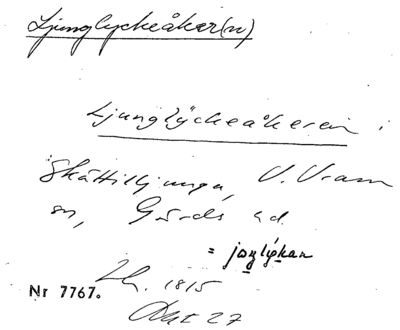 Ljunglyckeåker(n)
Ljunglyckeåkeren i
Skättilljunga, V. Vram
sn, Gärds hd.
= joŋlýkan
Lh. 1815
Akt 27
Nr 7767.